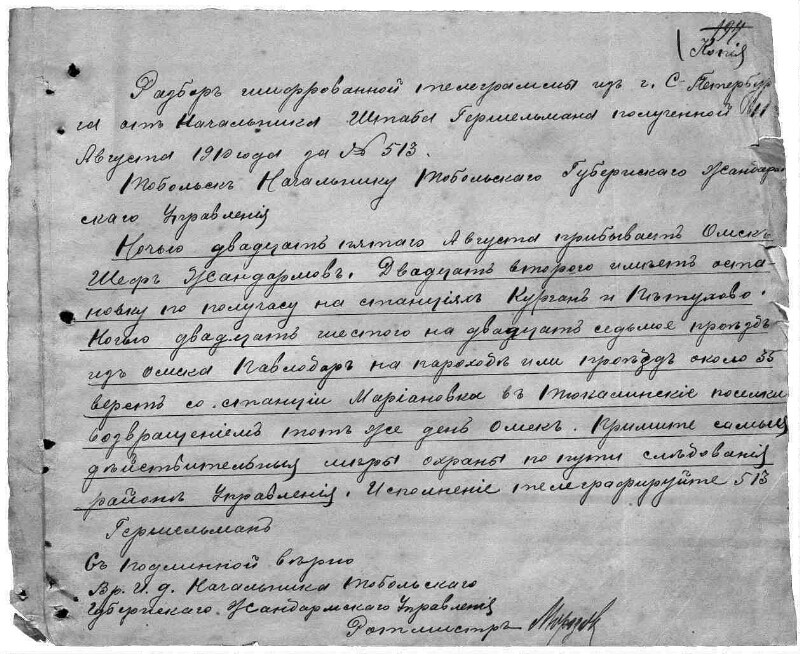 194
Копія
Разборъ шифрованной телеграммы изъ г. С-Петербур
га отъ Начальника Штаба Гершельмана полученной 11
Августа 1910 года за № 513.
Тобольскъ Начальнику Тобольскаго Губернскаго Жандарм
скаго Управленія
Ночью двадцать пятаго Августа прибываетъ Омскъ
Шефъ Жандармовъ. Двадцать второго имѣетъ оста-
новку по получасу на станціяхъ Курганъ и Пѣтухово.
Ночью двадцать шестого на двадцать седьмое проѣздъ
изъ Омска Павлодаръ на пароходѣ или проѣздъ около 35
верстъ со станціи Маріановка въ Тюкалинскіе поселки
возвращеніемъ тотъ же день Омскъ. Примите самыя
дѣйствительныя мѣры охраны по пути слѣдованія
районѣ Управленія. Исполненіе телеграфируйте 513
Гершельманъ
Съ подлинной вѣрно
Вр. И. д. Начальника Тобольскаго
Губернскаго Жандармскаго Управленія
Ротмистръ